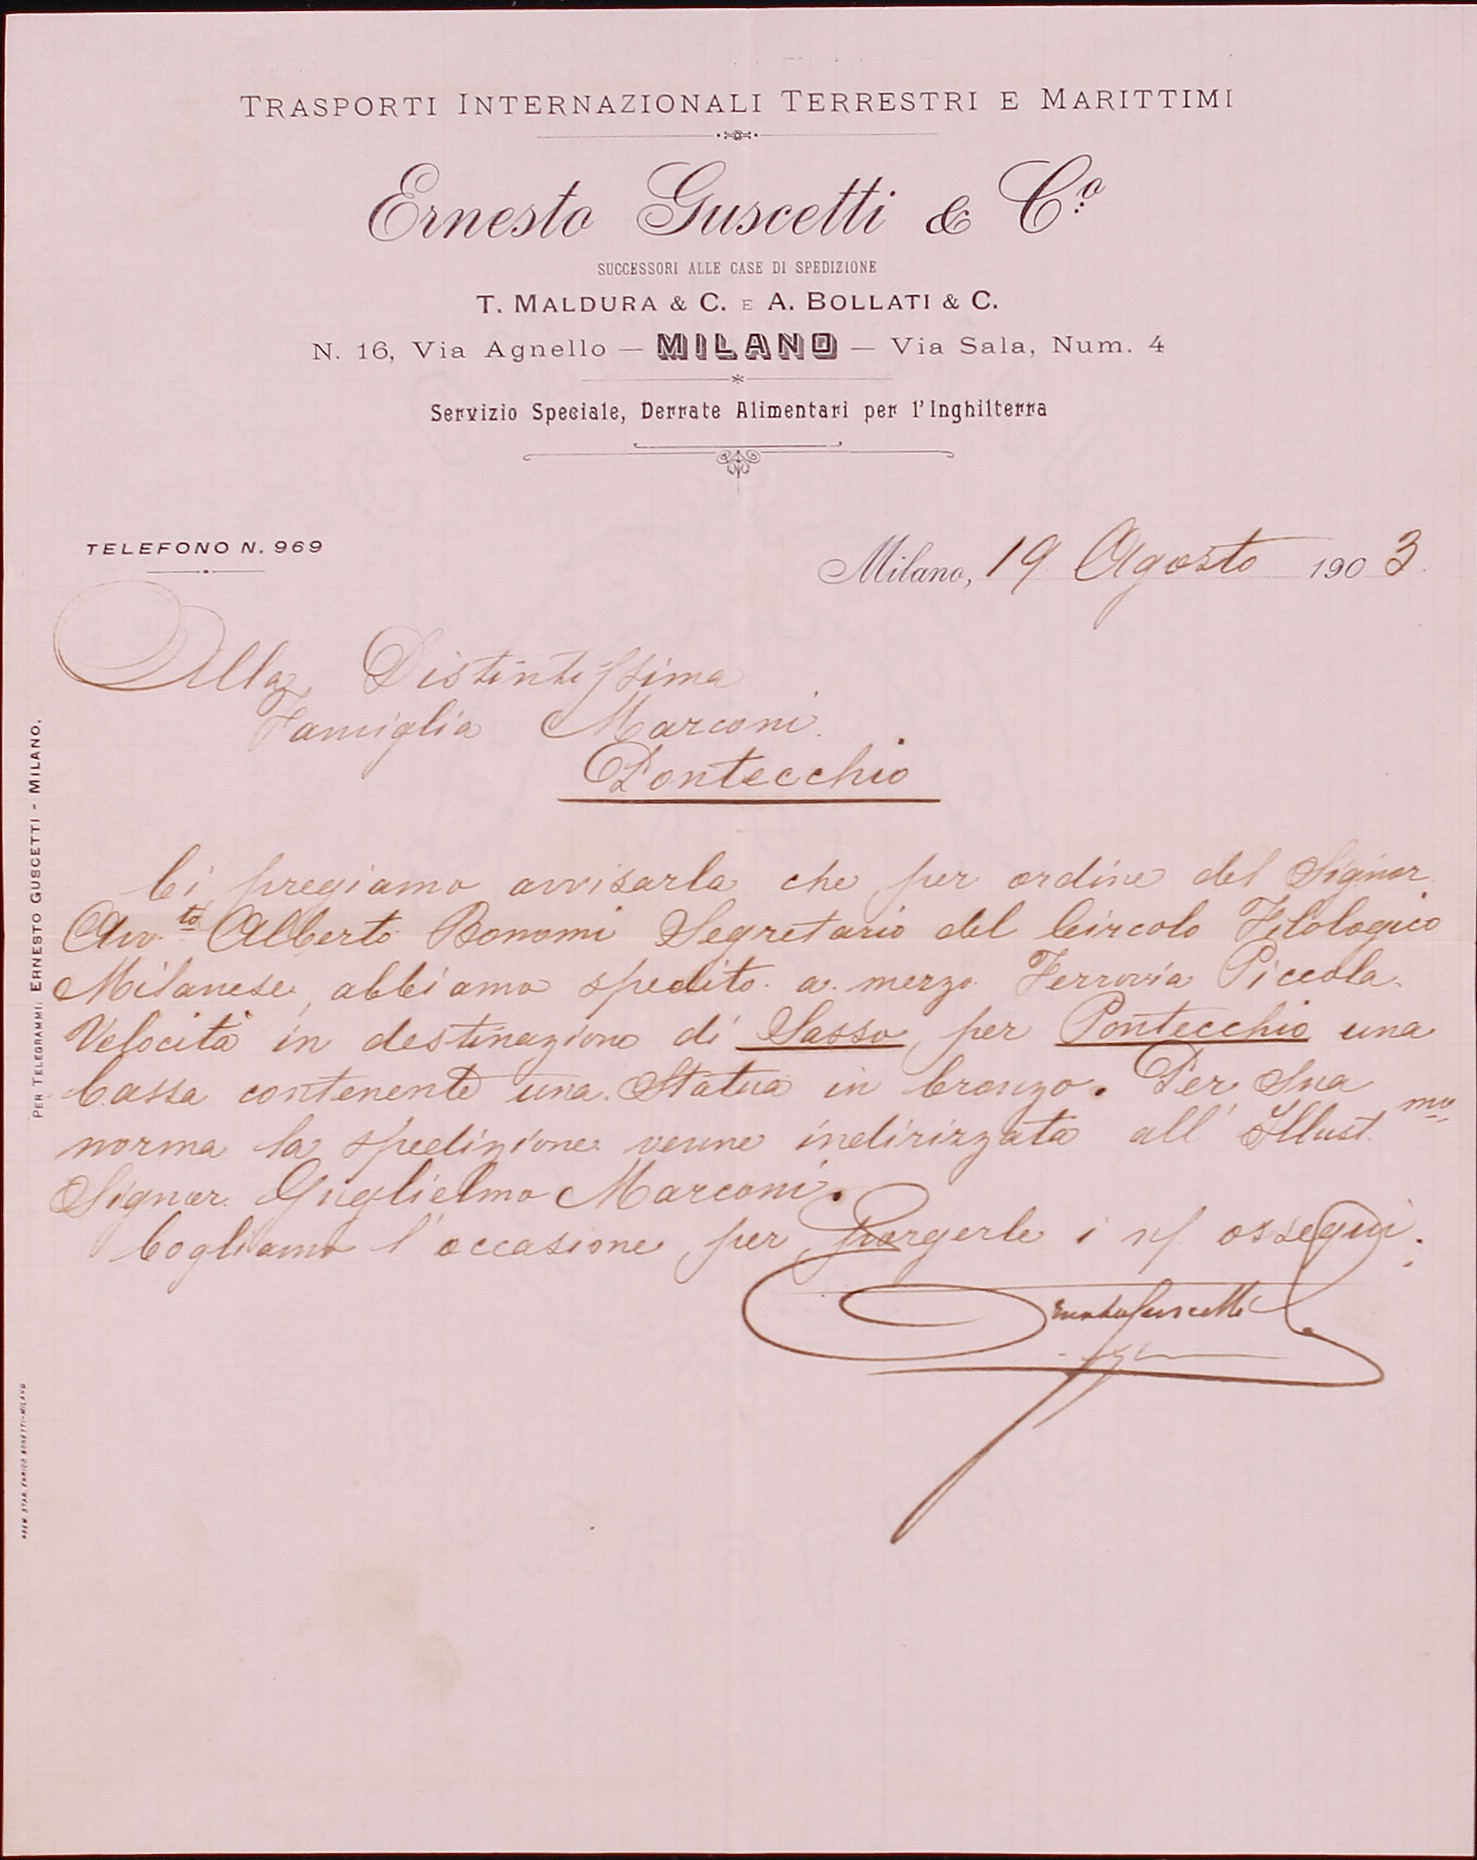 TRASPORTI INTERNAZIONALI TERRESTRI E MARITTIMI
Ernesto Guscetti & C.º
SUCCESSORI ALLE CASE DI SPEDIZIONE
T. MALDURA & C. E A. BOLLATI & C.
N. 16, Via Agnello — MILANO — Via Sala, Num. 4
Servizio Speciale, Derrate Alimentari per l'Inghilterra
TELEFONO N. 969
Milano, 19 Agosto 1903.
Alla Distintissima
Famiglia Marconi.
Pontecchio
Ci pregiamo avvisarla che per ordine del Signor
Avv.to Alberto Bonomi Segretario del Circolo Filologico
Milanese, abbiamo spedito a mezzo Ferrovia Piccola
Velocità in destinazione di Sasso per Pontecchio una
Cassa contenente una Statua in bronzo. Per Sua
norma la spedizione venne indirizzata all' Illust.mo
Signor Guglielmo Marconi.
Cogliamo l'occasione per porgerle i n/ ossequi.
Ernesto Guscetti
PER TELEGRAMMI: ERNESTO GUSCETTI - MILANO.
PREM. STAB. ENRICO BONETTI-MILANO